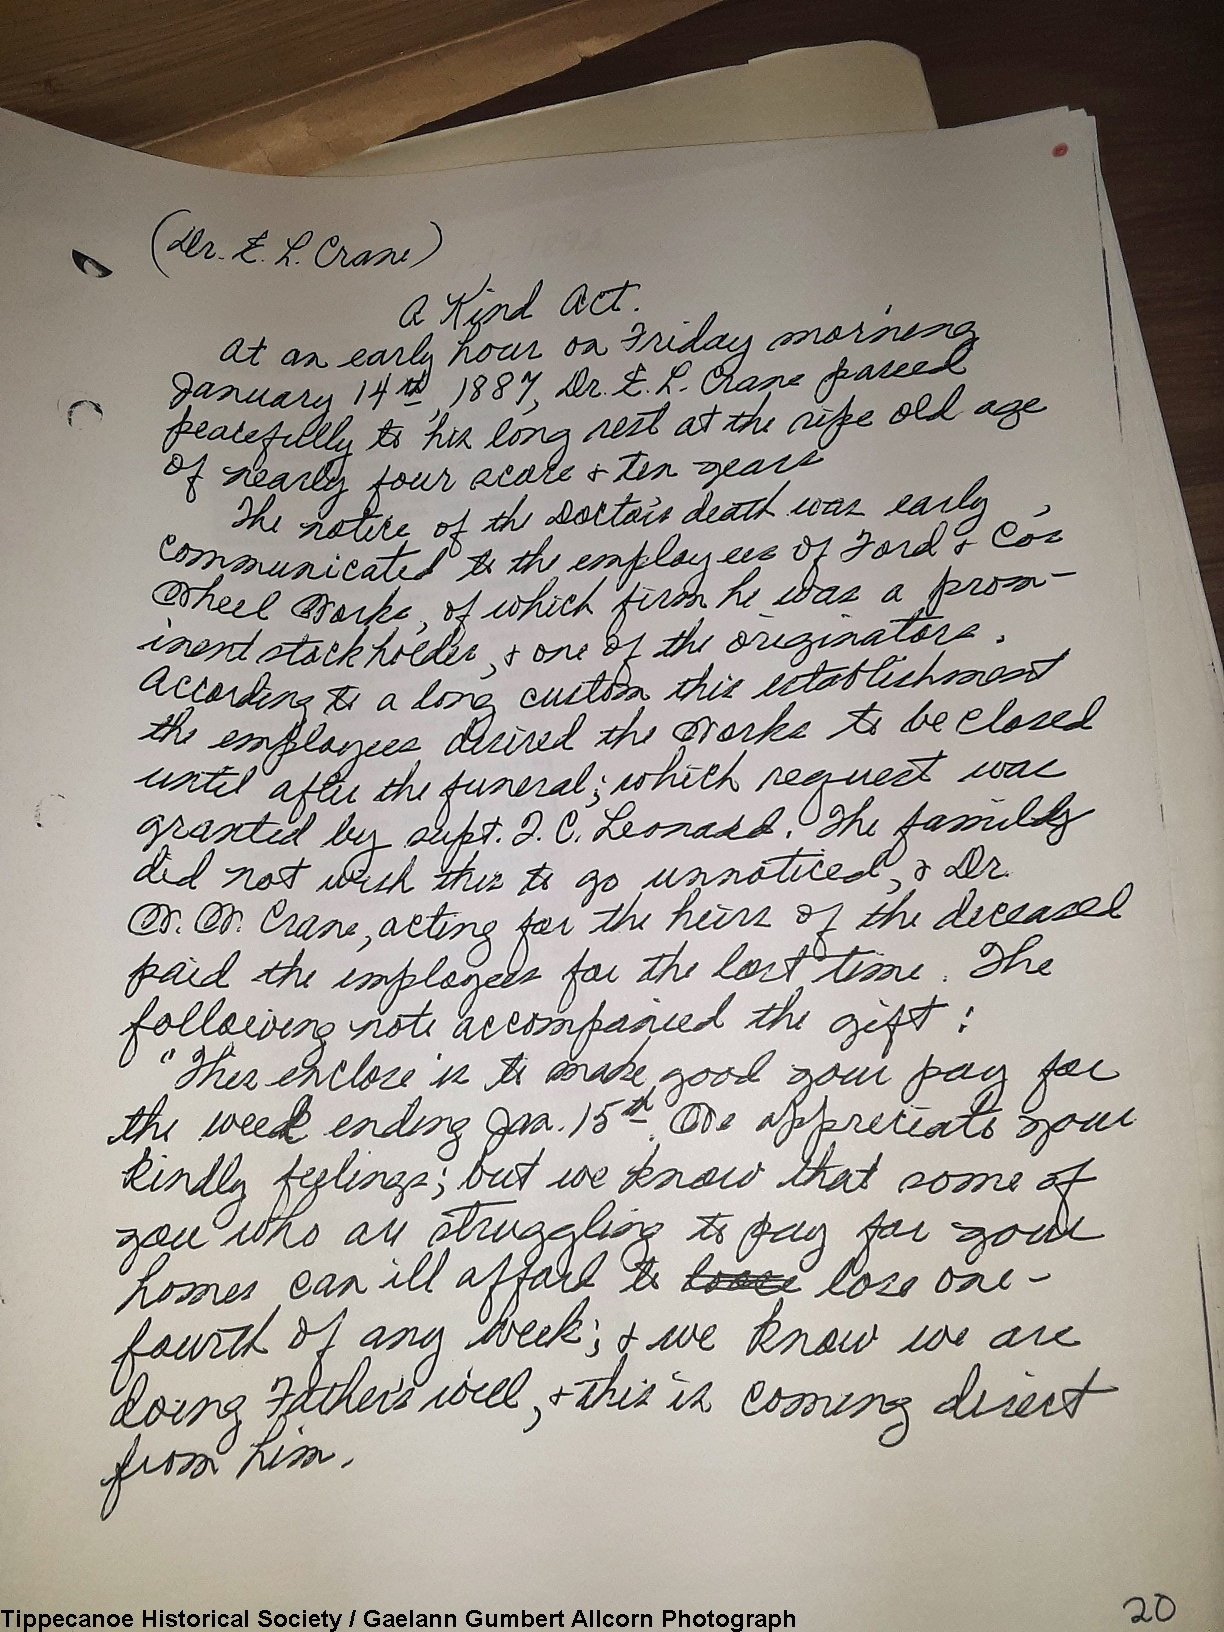 (Dr. E. L. Crane)
A Kind Act.
At an early hour on Friday morning
January 14th, 1887, Dr. E. L. Crane passed
peacefully to his long rest at the ripe old age
of nearly four score & ten years
The notice of the Doctor's death was early
communicated to the employees of Ford & Co's
Wheel Works, of which firm he was a prom-
inent stockholder, & one of the originators.
According to a long custom this establishment
the employees desired the Works to be closed
until after the funeral; which request was
granted by supt. T. C. Leonard. The family
did not wish this to go unnoticed, & Dr.
W. W. Crane, acting for the heirs of the deceased
paid the employees for the lost time. The
following note accompanied the gift:
"This enclose is to make good your pay for
the week ending Jan. 15th. We appreciate your
kindly feelings; but we know that some of
you who are struggling to pay for your
homes can ill afford to lose one-
fourth of any week; & we know we are
doing Father's will, & this is coming direct
from him.
20
Tippecanoe Historical Society / Gaelann Gumbert Allcorn Photograph